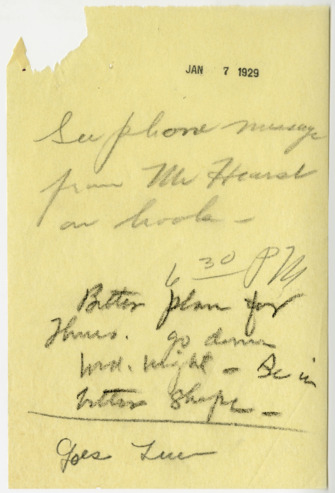 JAN 7 1929
See phone message
from Mr Hearst
on hook -
6 30 PM
Better plan for
Thurs. go down
Wed. night - Be in
better shape -
Goes Tues